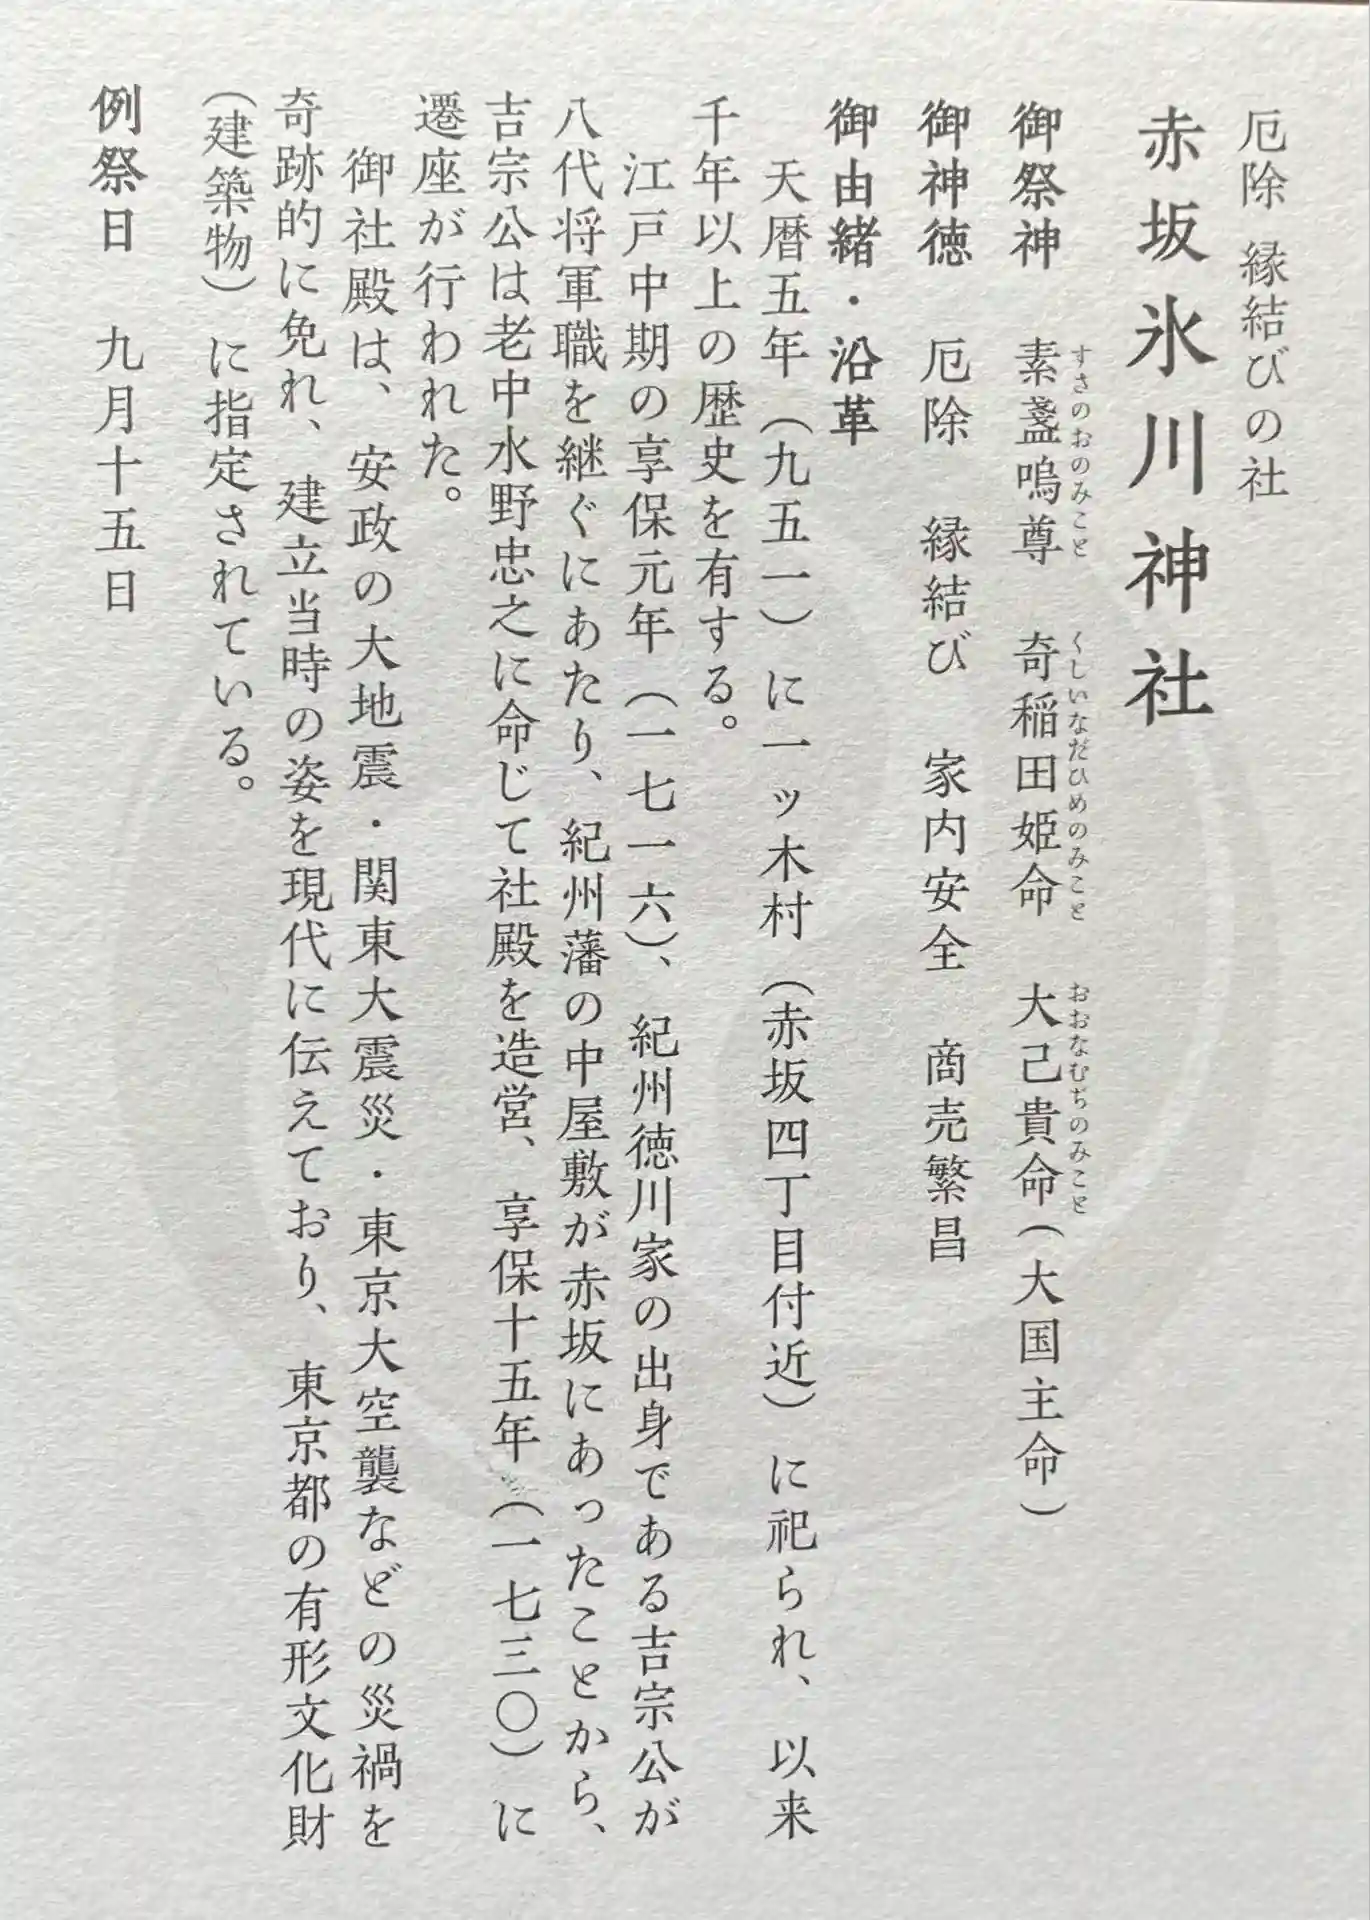 厄除 縁結びの社
赤坂氷川神社
御祭神 素盞嗚尊 奇稲田姫命 大己貴命（大国主命）
すさのおのみこと くしいなだひめのみこと おおなむぢのみこと
御神徳 厄除 縁結び 家内安全 商売繁昌
御由緒・沿革
天暦五年（九五一）に一ッ木村（赤坂四丁目付近）に祀られ、以来
千年以上の歴史を有する。
江戸中期の享保元年（一七一六）、紀州徳川家の出身である吉宗公が
八代将軍職を継ぐにあたり、紀州藩の中屋敷が赤坂にあったことから、
吉宗公は老中水野忠之に命じて社殿を造営、享保十五年（一七三〇）に
遷座が行われた。
御社殿は、安政の大地震・関東大震災・東京大空襲などの災禍を
奇跡的に免れ、建立当時の姿を現代に伝えており、東京都の有形文化財
（建築物）に指定されている。
例祭日 九月十五日